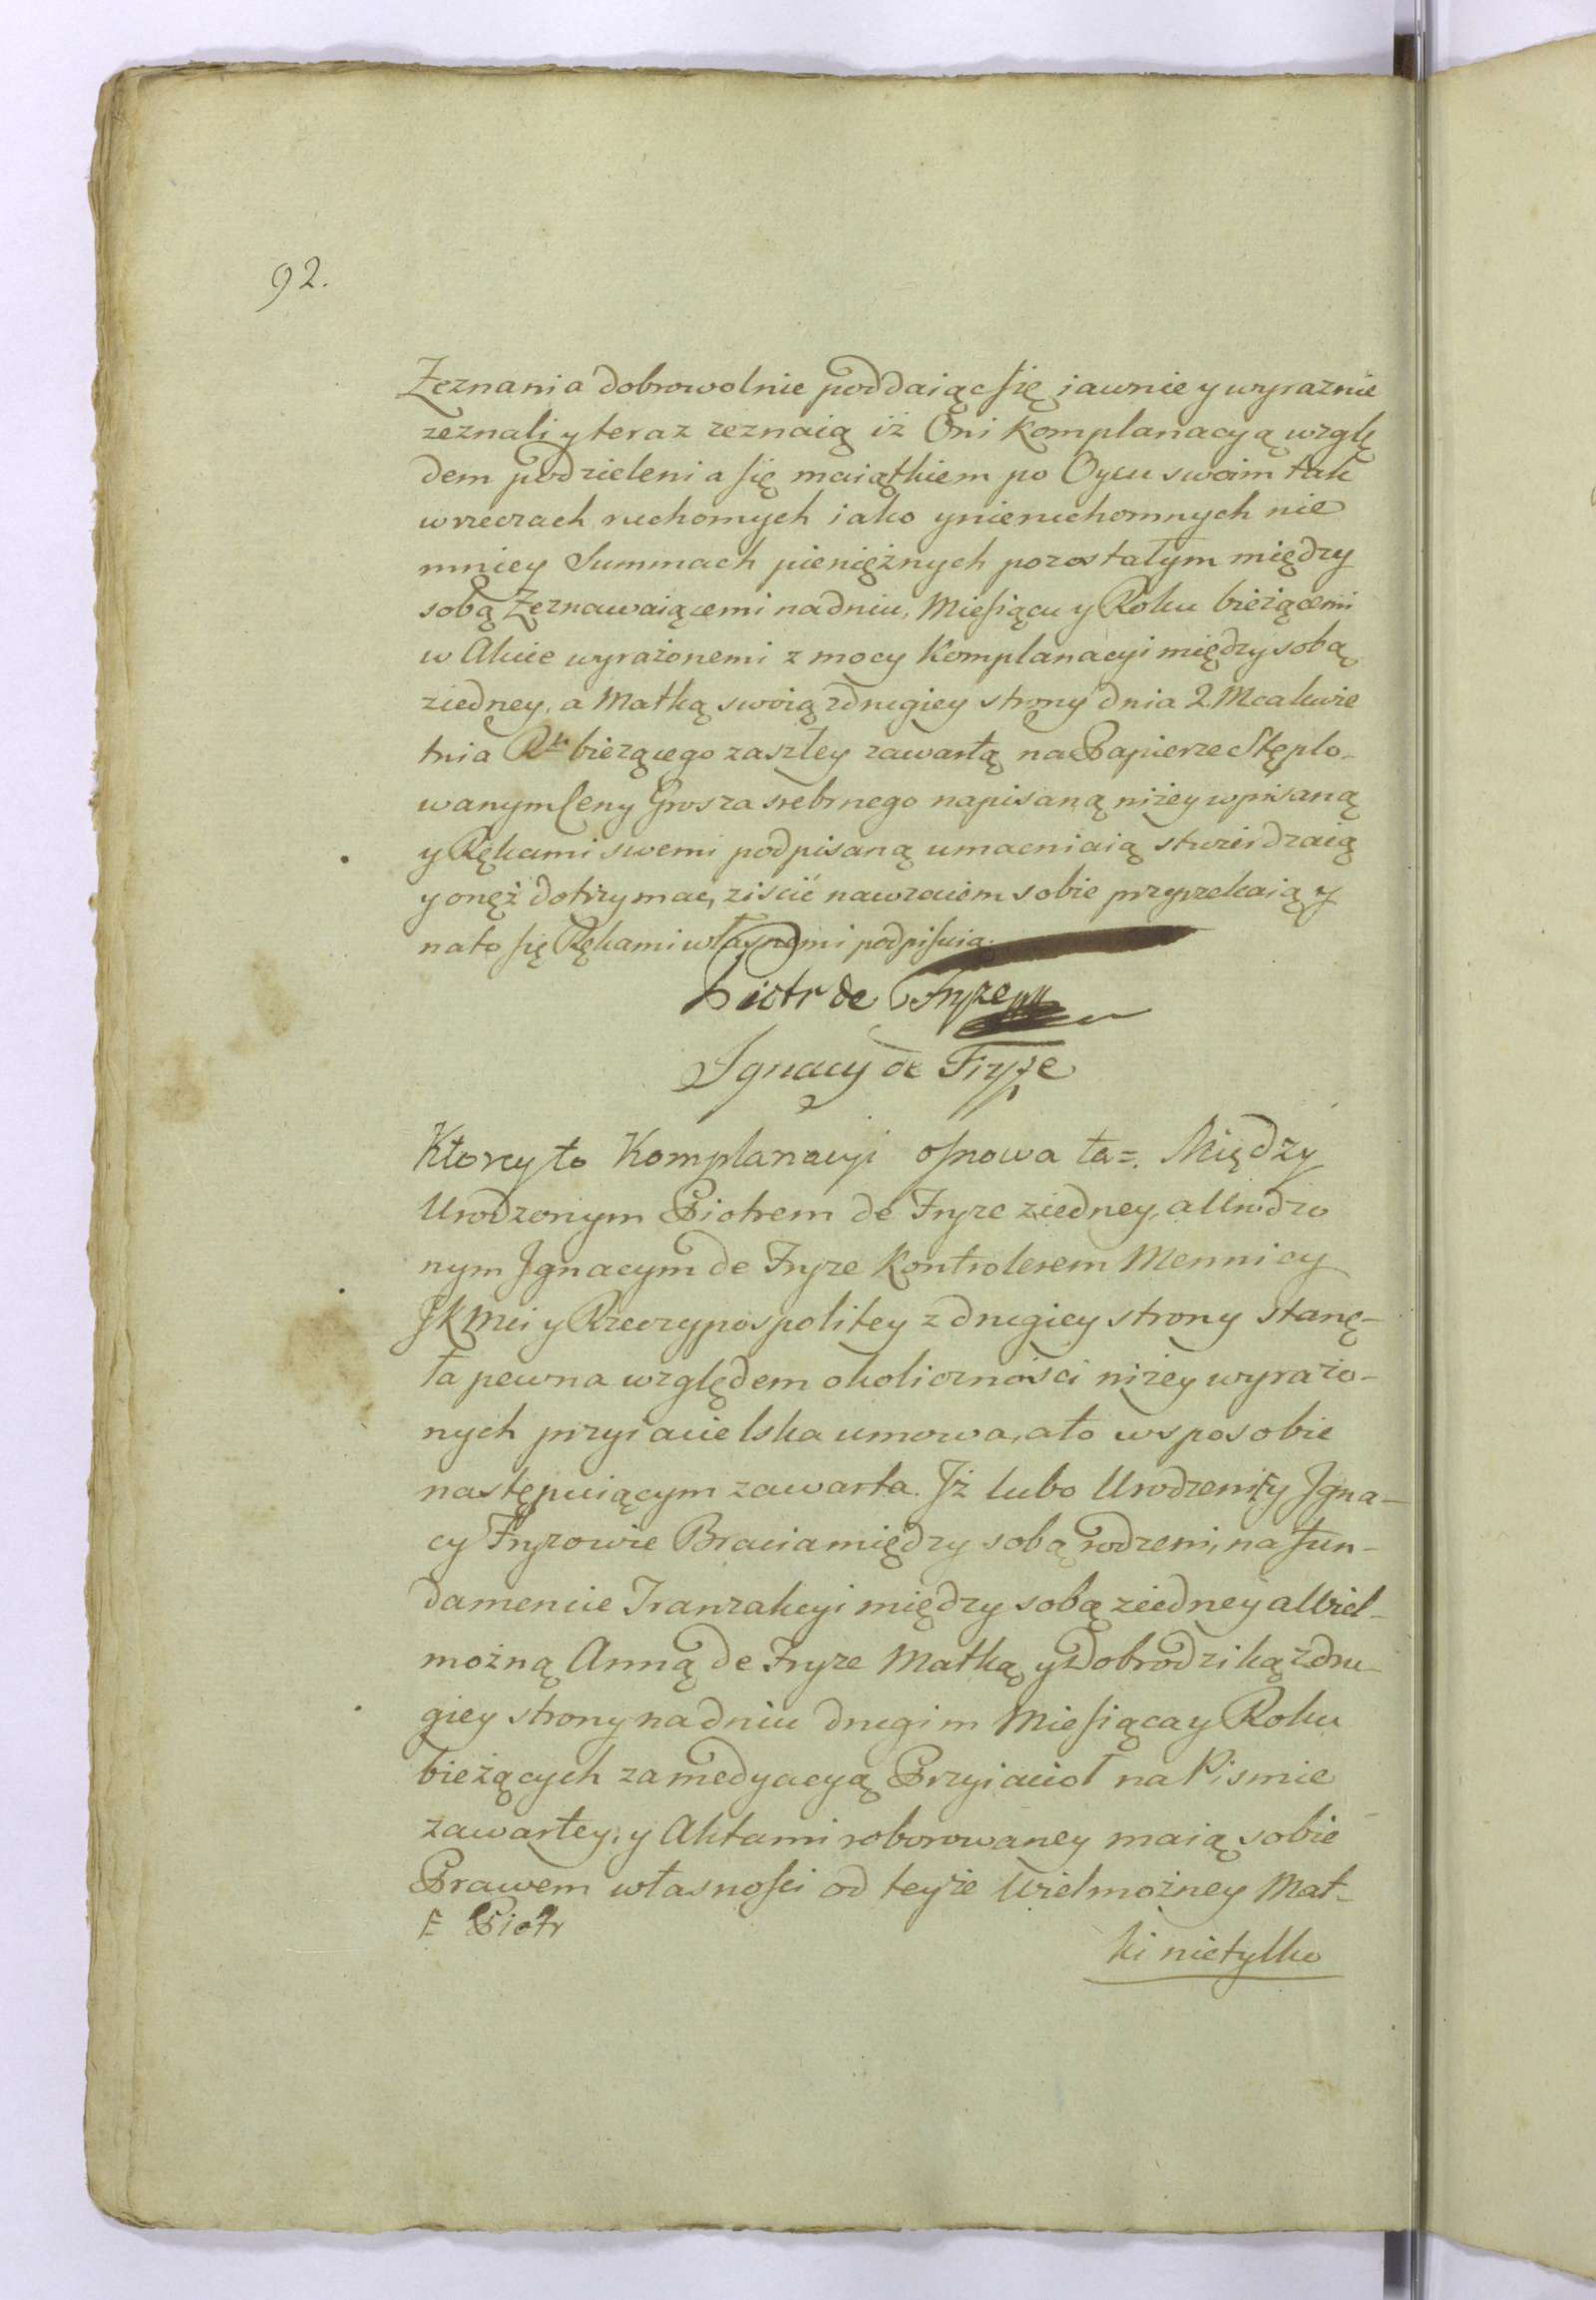 92.
Zeznania dobrowolnie poddaiąc się iawnie y wyraznie
zeznali y teraz zeznaią iż Oni Komplanacyą wzglę
dem podzielenia się maiątkiem po Oycu swoim tak
w rzeczach ruchomych iako y nieruchomnych nie
mniey Summach pieniężnych pozostałym między
sobą Zeznawaiącemi na dniu, Miesiącu y Roku bieżącemi
w Akcie wyrażonemi z mocy Komplanacyi między sobą
z iedney, a Matką swoią z drugiey strony dnia 2 Mca kwie
tnia Rku bieżącego zaszłey zawartą na Papierze Stęplo-
wanym Ceny Grosza srebrnego napisaną niżey wpisaną
y Rękami swemi podpisaną umacniaią stwierdzaią
y onęż dotrzymać, ziścić nawzaiem sobie przyrzekaią y
na to się Rękami własnemi podpisuią.
Piotr de Fryze
Ignacy de Fryze
Ktorey to Komplanacyi osnowa ta =. Między
Urodzonym Piotrem de Fryze z iedney, a Urodzo
nym Jgnacym de Fryze Kontrolerem Mennicy
JKMci y Rzeczypospolitey z drugiey strony stanę-
ła pewna względem okoliczności niżey wyrażo-
nych przyiacielska umowa, a to w sposobie
następuiącym zawarta. Jż lubo Urodzeni F y Jgna-
cy Fryzowie Bracia między sobą rodzeni, na fun-
damencie Tranzakcyi między sobą z iedney a Wiel-
możną Anną de Fryze Matką y Dobrodziką z dru-
giey strony na dniu drugim Miesiąca y Roku
bieżących za medyacyą Przyiacioł na Pismie
zawartey, y Aktami roborowaney maią sobie
Prawem własności od teyże Wielmożney Mat-
F Piotr
ki nietylko